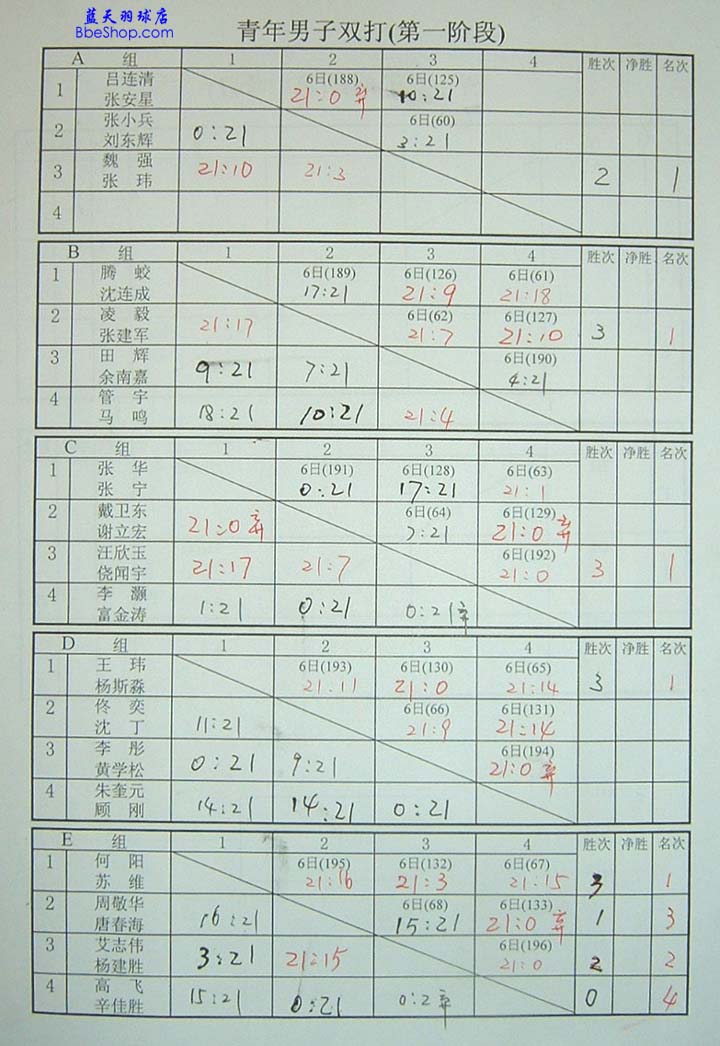 蓝天羽球店
BbeShop.com
青年男子双打(第一阶段)
A 组 1 2 3 4 胜次 净胜 名次
1 吕连清 6日(188) 6日(125)
张安星 21:0 弃 10:21
2 张小兵 6日(60)
刘东辉 0:21 3:21
3 魏 强
张 玮 21:10 21:3 2 1
4
B 组 1 2 3 4 胜次 净胜 名次
1 腾 蛟 6日(189) 6日(126) 6日(61)
沈连成 17:21 21:9 21:18
2 凌 毅 6日(62) 6日(127)
张建军 21:17 21:7 21:10 3 1
3 田 辉 6日(190)
余南嘉 9:21 7:21 4:21
4 管 宇
马 鸣 18:21 10:21 21:4
C 组 1 2 3 4 胜次 净胜 名次
1 张 华 6日(191) 6日(128) 6日(63)
张 宁 0:21 17:21 21:1
2 戴卫东 6日(64) 6日(129)
谢立宏 21:0 弃 7:21 21:0 弃
3 汪欣玉 6日(192)
饶闻宇 21:17 21:7 21:0 3 1
4 李 灏
富金涛 1:21 0:21 0:21 弃
D 组 1 2 3 4 胜次 净胜 名次
1 王 玮 6日(193) 6日(130) 6日(65)
杨斯淼 21:11 21:0 21:14 3 1
2 佟 奕 6日(66) 6日(131)
沈 丁 11:21 21:9 21:14
3 李 彤 6日(194)
黄学松 0:21 9:21 21:0 弃
4 朱奎元
顾 刚 14:21 14:21 0:21
E 组 1 2 3 4 胜次 净胜 名次
1 何 阳 6日(195) 6日(132) 6日(67)
苏 维 21:16 21:3 21:15 3 1
2 周敬华 6日(68) 6日(133)
唐春海 16:21 15:21 21:0 弃 1 3
3 艾志伟 6日(196)
杨建胜 3:21 21:15 21:0 2 2
4 高 飞
辛佳胜 15:21 0:21 0:2 弃 0 4